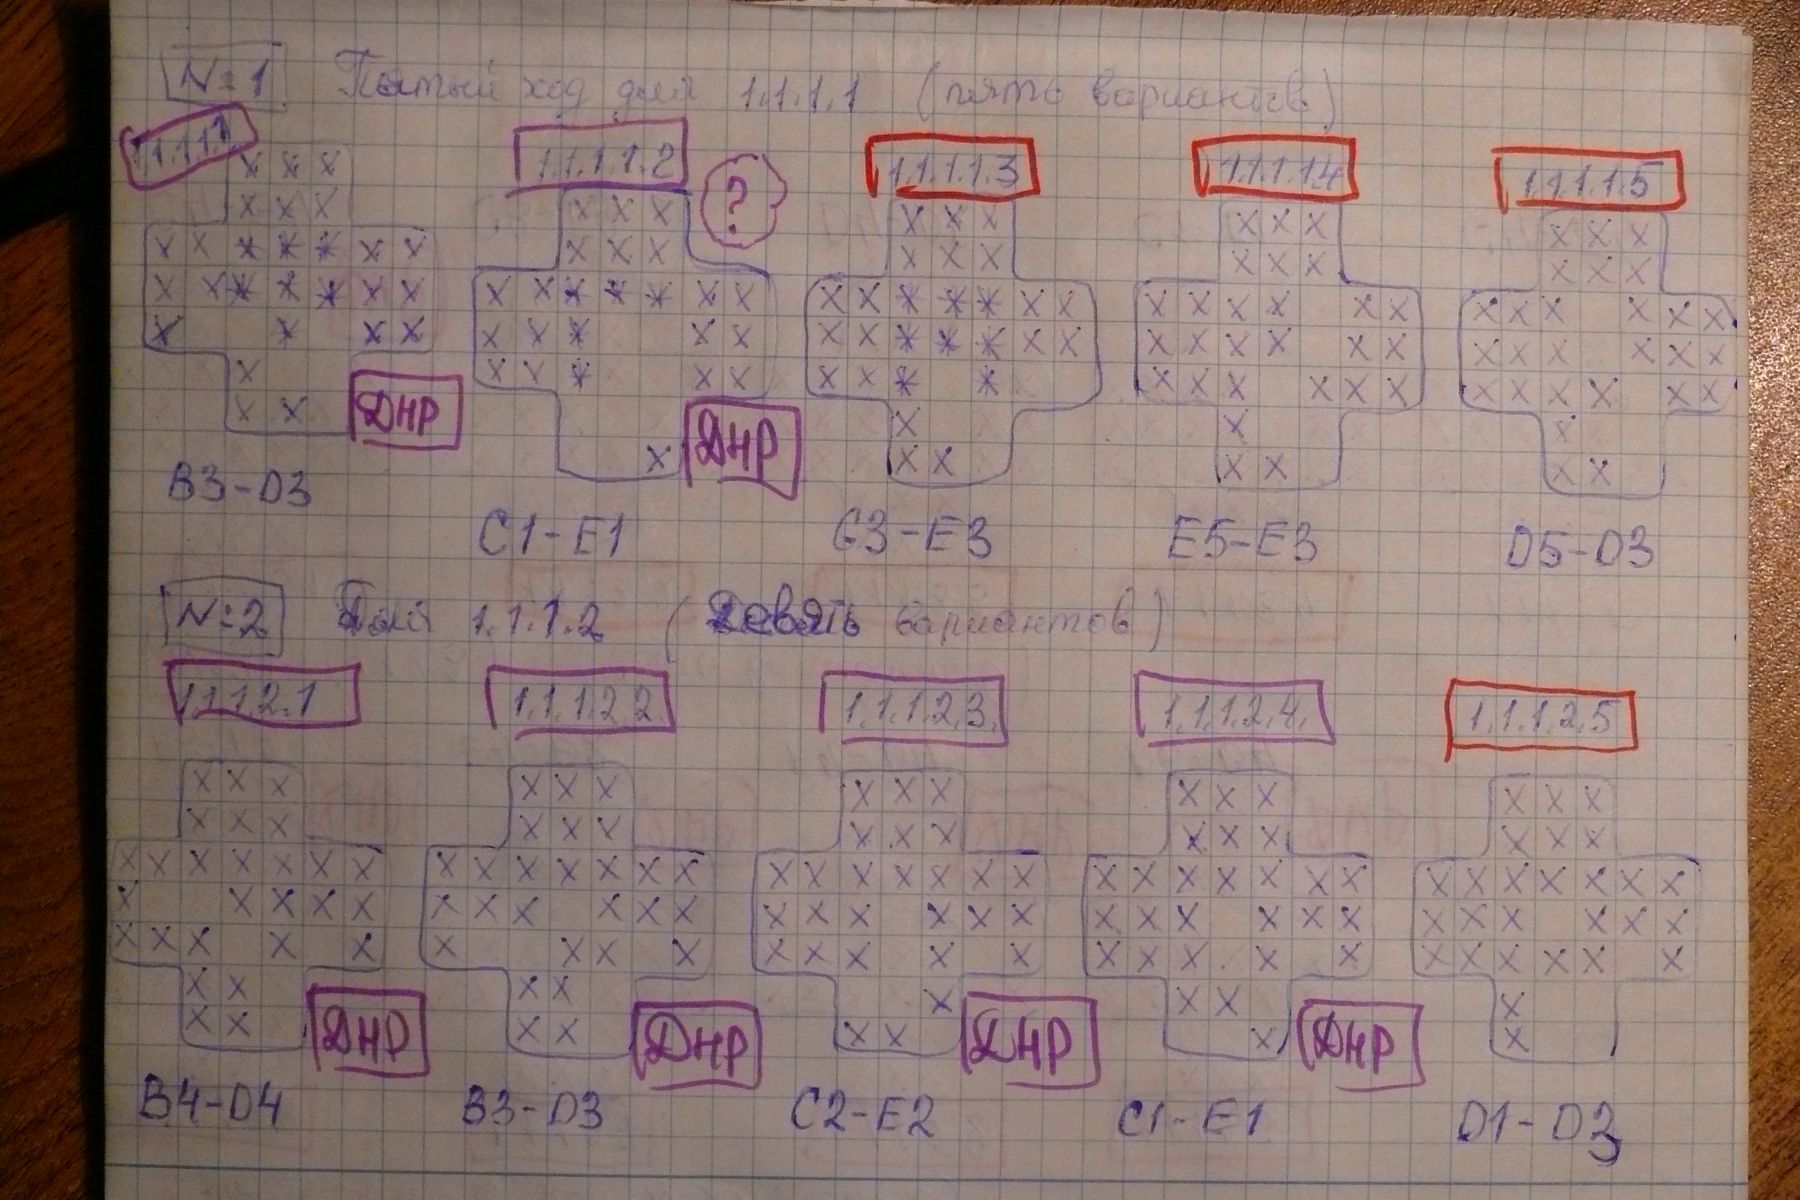 №1 Пятый ход для 1.1.1.1 (пять вариантов)
1.1.1.1.1 1.1.1.1.2 ? 1.1.1.1.3 1.1.1.1.4 1.1.1.1.5
ДНР ДНР
B3-D3 C1-E1 C3-E3 E5-E3 D5-D3
№2 Для 1.1.1.2 (Девять вариантов)
1.1.1.2.1 1.1.1.2.2 1.1.1.2.3. 1.1.1.2.4. 1.1.1.2.5
ДНР ДНР ДНР ДНР
B4-D4 B3-D3 C2-E2 C1-E1 D1-D3